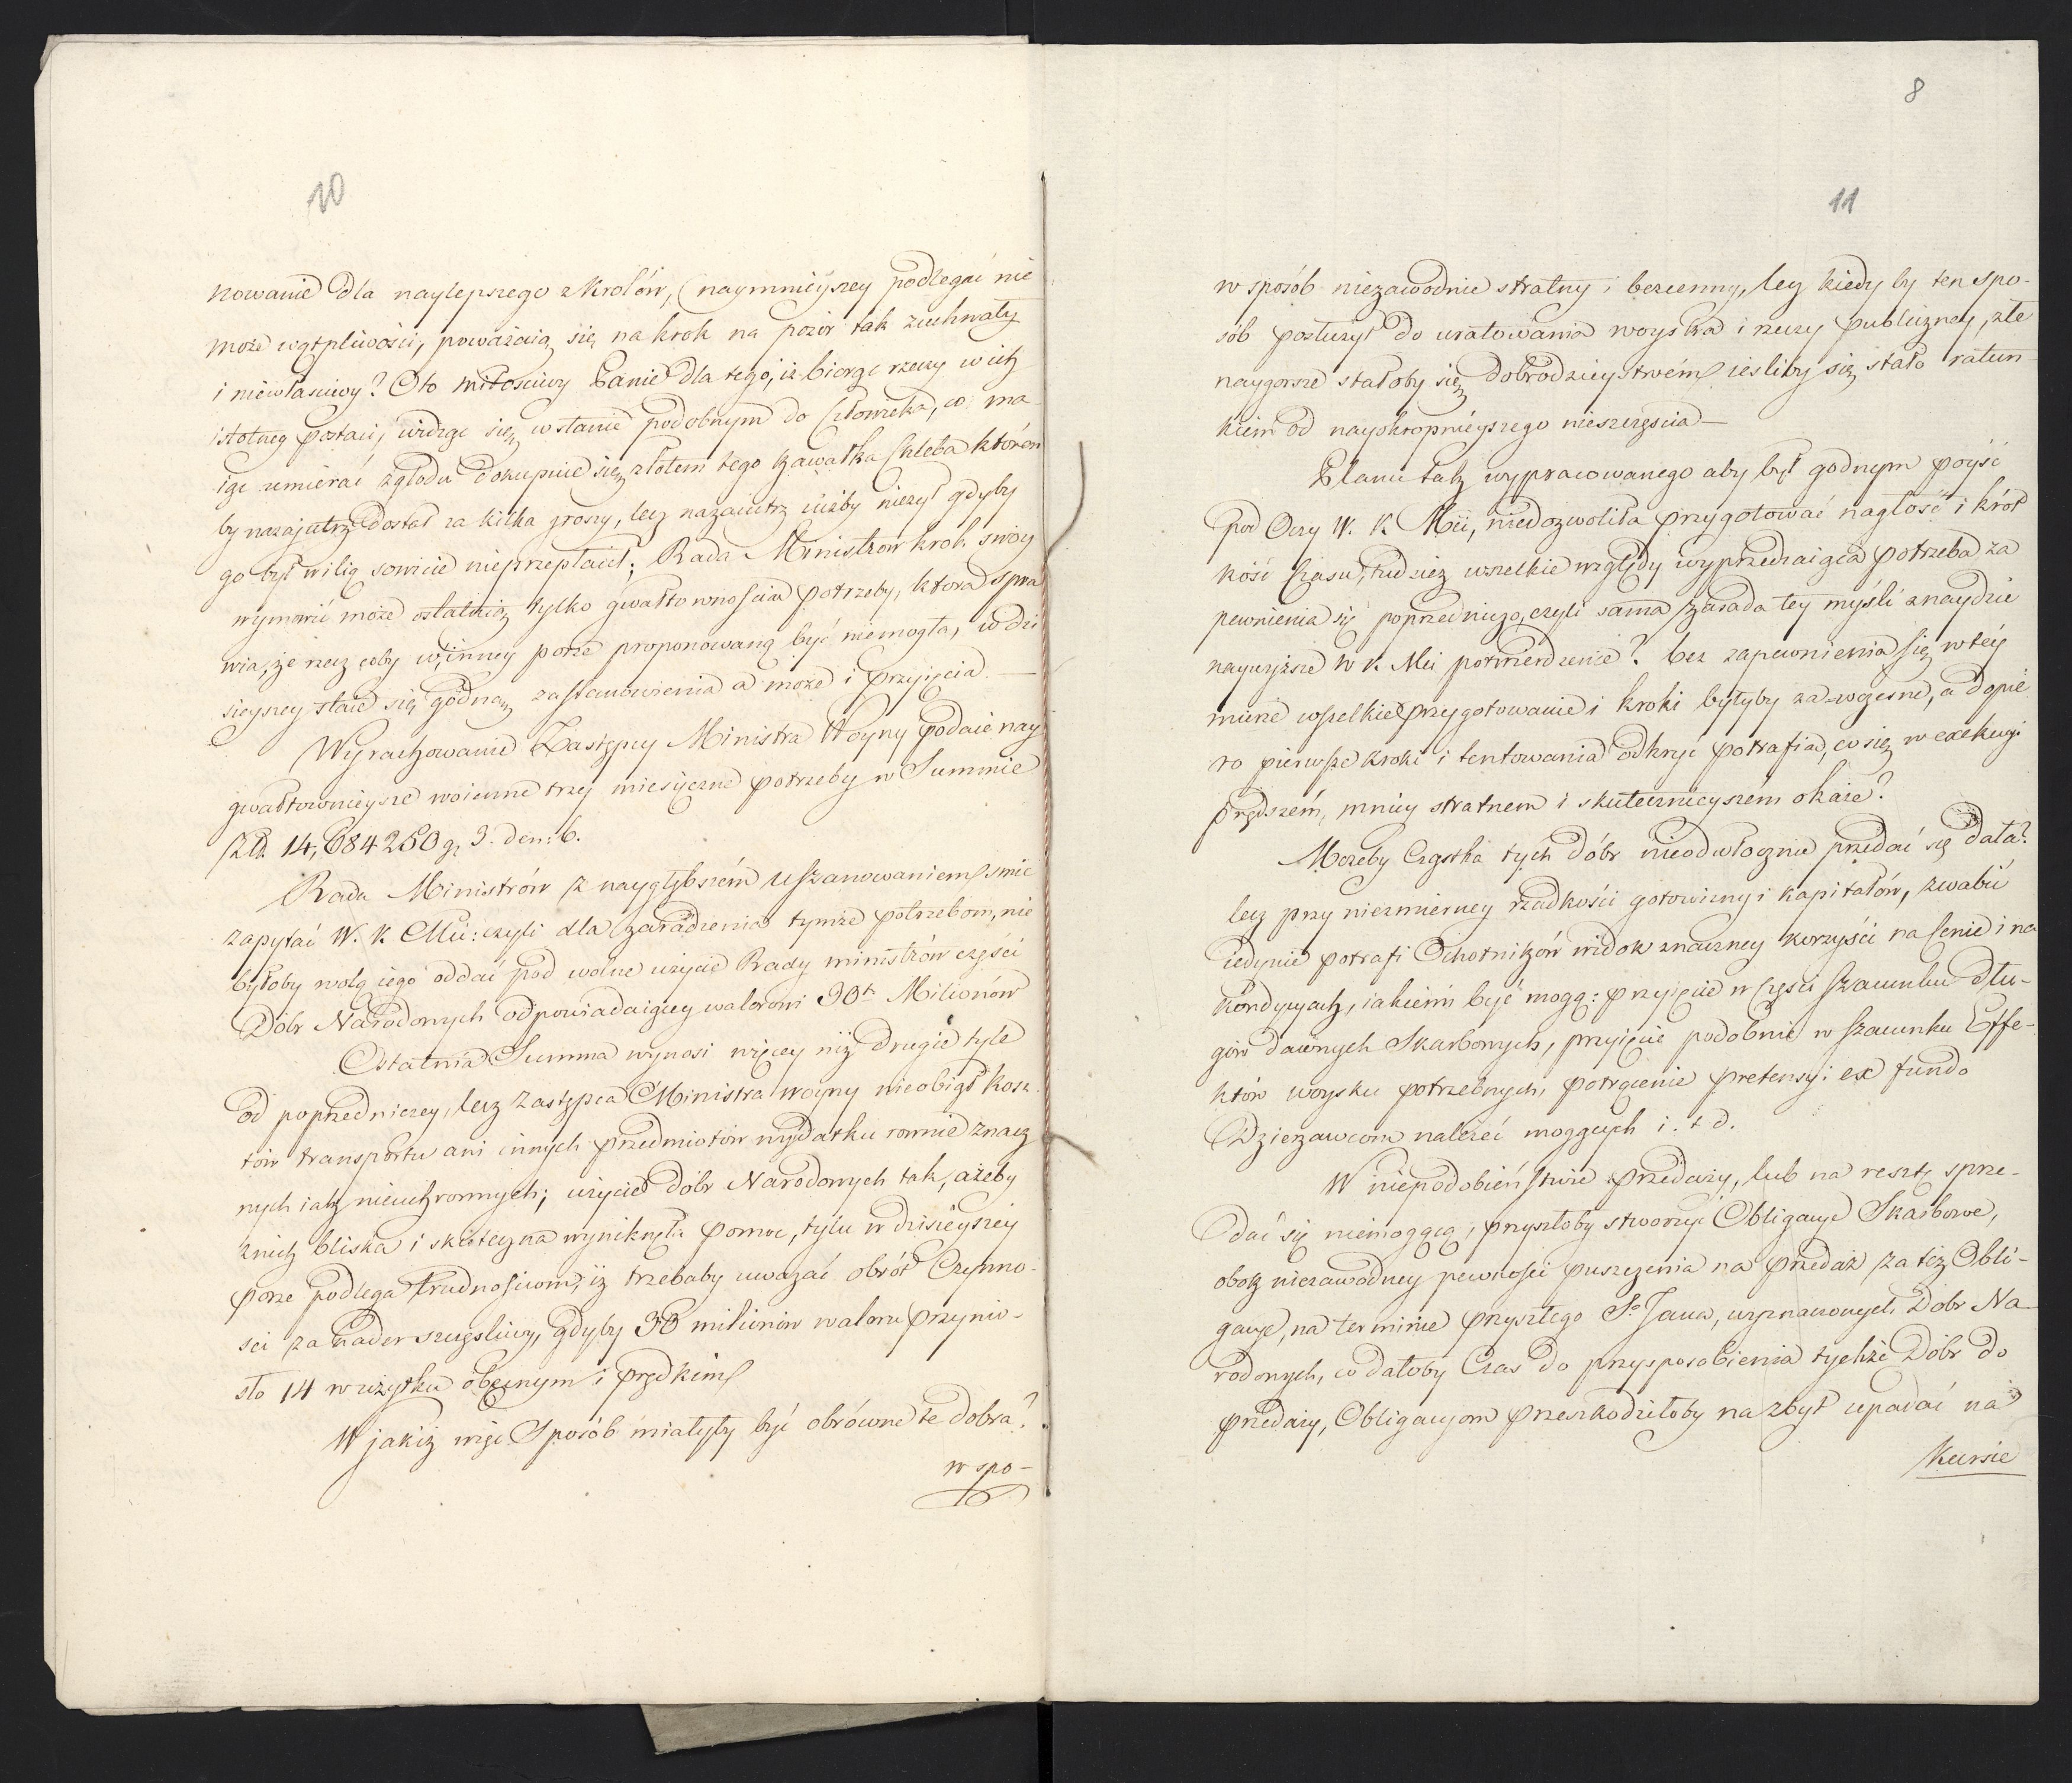 10
kowanie dla naylepszego z Królów, naymnieyszey podlegać nie
może wątpliwości, poważaią się na krok na pozór tak zuchwały
i niewłaściwy? Oto miłościwy Panie dla tego, iż biorąc rzeczy w ich
istotney postaci, widząc się w stanie podobnym do Człowieka, co ma-
iąc umierać z głodu dokupuie się złotem tego kawałka Chleba któren
by nazajutrz dostał za kilka groszy, lecz nazaiutrz iużby nieżył gdyby
go był wilią sowicie nieprzepłacił; Rada Ministrów krok swóy
wymówić może ostatnią tylko gwałtownością potrzeby, która spra
wia, że rzecz coby w inney porze proponowaną być niemogła, w dzi
sieyszey staie się godną zastanowienia a może i przyięcia. —
Wyrachowanie Zastępcy Ministra Woyny podaie nay
gwałtownieysze woienne trzy miesięczne potrzeby w Summie
Złł 14,684250 g. 3. den: 6.
Rada Ministrów z naygłębszém uszanowaniem śmie
zapytać W. K. Mci: czyli dla zaradzenia tymże potrzebom, nie
byłoby wolą iego oddać pod wolne użycie Rady ministrów części
Dóbr Narodowych odpowiadaiącey walorowi 30tu Milionów
Ostatnia Summa wynosi więcey niż drugie tyle
od poprzedniczey, lecz Zastępca Ministra woyny nieobiął kosz
tów transportu ani innych przedmiotów wydatku równie znacz
nych iak nieuchronnych; użycie dóbr Narodowych tak, ażeby
z nich bliska i skuteczna wyniknęła pomoc, tylu w dzisieyszey
porze podlega trudnościom, iż trzebaby uważać obrót Czynno-
ści za nader szczęśliwy, gdyby 30 milionów waloru przynio-
sło 14 w użytku obecnym i prędkim
W jakiż więc Sposób miałyby być obrócone te dobra?
w spo-
8
11
w sposób niezawodnie stratny i bezcenny, lecz kiedy by ten spo-
sób posłużył do uratowania woyska i rzeczy publiczney, złe
naygorsze stałoby się dobrodzieystwém ieśliby się stało ratun-
kiem od nayokropnieyszego nieszczęścia —
Planu tak wypracowanego aby był godnym póyść
pod Oczy W. K. Mci, niedozwoliła przygotować nagłość i krót
kość Czasu, tudzież wszelkie względy wyprzedzaiąca potrzeba za
pewnienia się poprzedniego, czyli sama zasada tey myśli znaydzie
naywyższe W K. Mci potwierdzenie? bez zapewnienia się w téy
mierze wszelkie przygotowanie i kroki byłyby za wczesne, a dopie
ro pierwsze kroki i tentowania odkryć potrafią, co się w exekucyi
prędszém, mniey stratnem i skutecznieyszém okaże?
Możeby Cząstka tych dóbr nieodwłocznie przedać się dała?
lecz przy niezmierney rzadkości gotowizny i kapitałów, zwabić
iedynie potrafi Ochotników widok znaczney korzyści na Cenie i na
kondycyach, iakiemi być mogą: przyięcie w Części szacunku dłu-
gów dawnych Skarbowych, przyięcie podobnie w szacunku Effe-
któw woysku potrzebnych, potrącenie pretensyi ex fundo
Dzierżawcom należeć mogących i. t. d.
W niepodobieństwie przedaży, lub na resztę sprze-
dać się niemogącą, przyszłoby stworzyć Obligacye Skarbowe,
obok niezawodney pewności puszczenia na przedaż za też Obli-
gacye, na terminie przyszłego So Jana, wyznaczonych Dóbr Na-
rodowych, co dałoby Czas do przysposobienia tychże Dóbr do
przedaży, Obligacyom przeszkodziłoby nazbyt upadać na
Kursie